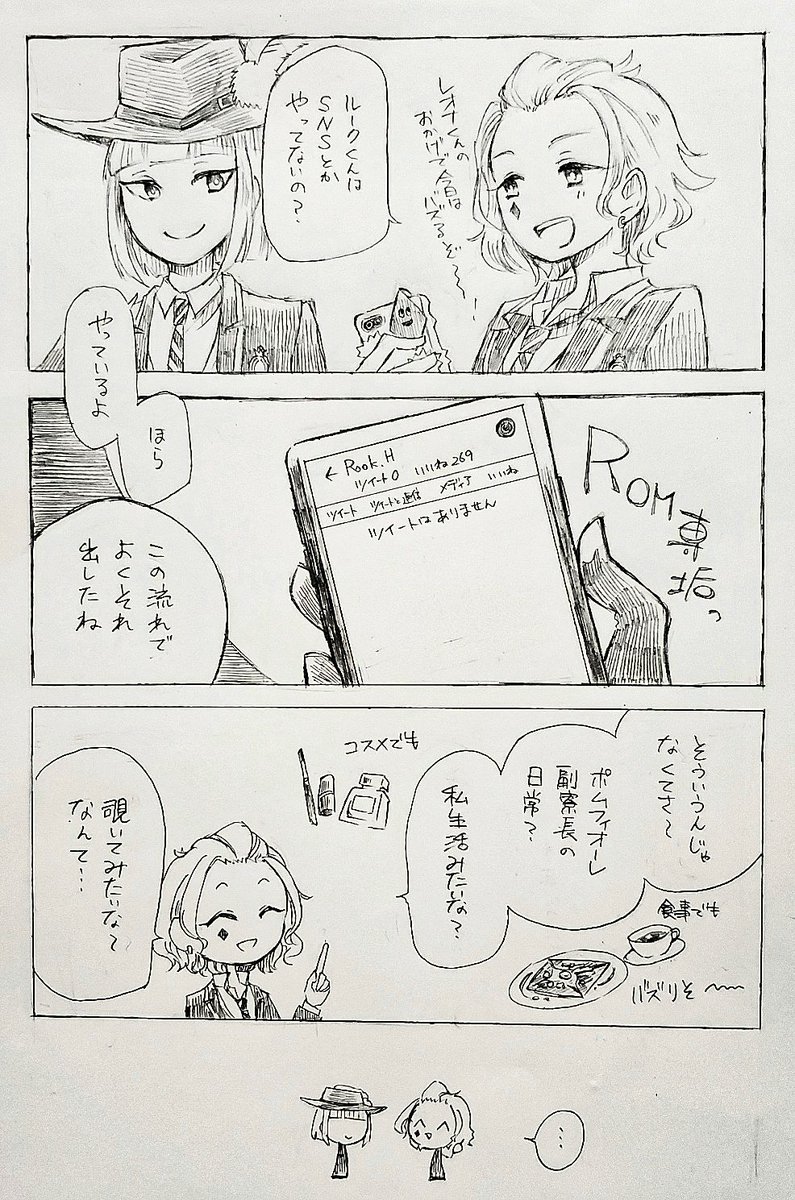 レオナくんの
おかげで今日は
バズるぞ〜〜!
ルークくんは
SNSとか
やってないの?
やっているよ
ほら
ROM専垢っ
← Rook.H
ツイート0 いいね269
ツイート ツイートと返信 メディア いいね
ツイートはありません
この流れで
よくそれ
出したね
そういうんじゃ
なくてさ〜
ポムフィオーレ
副寮長の
日常?
私生活みたいな?
食事でも
バズりそ〜〜
コスメでも
覗いてみたいな〜
なんて!…
…